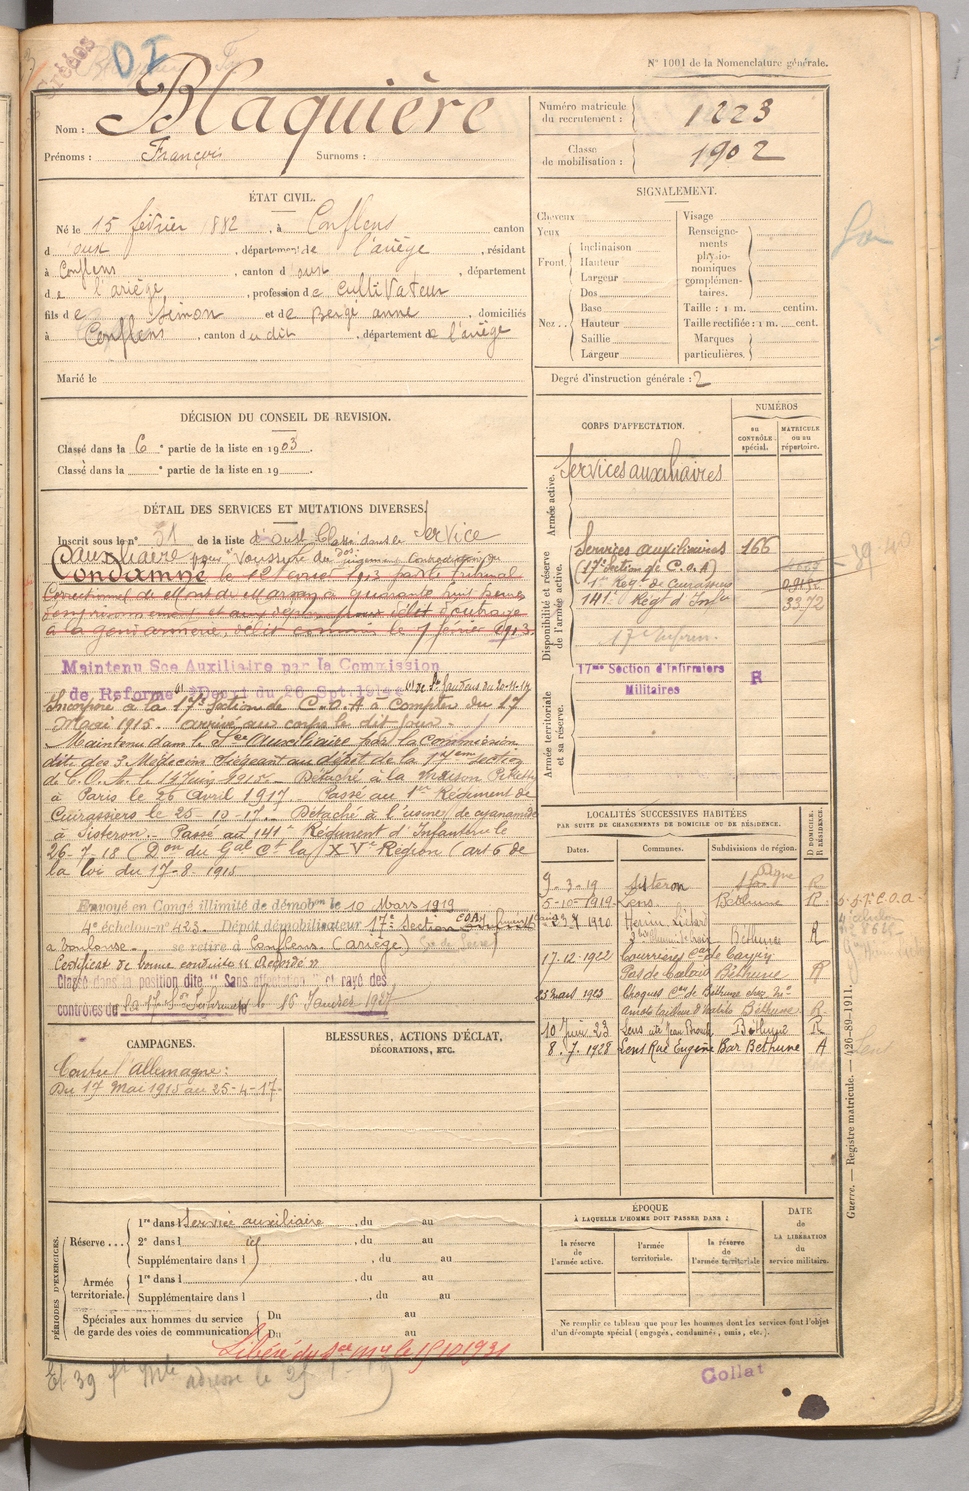 DI
N° 1001 de la Nomenclature générale.
Nom : Blaquière
Prénoms : François Surnoms :
Numéro matricule du recrutement : 1223
Classe de mobilisation : 1902
ÉTAT CIVIL.
Né le 15 février 1882, à Conflens canton
d oust, département de l'ariège, résidant
à Conflens, canton d oust, département
de l'ariège, profession de cultivateur
fils de Simon et de Bergé anne, domiciliés
à Conflens, canton dudit, département de l'ariège
Marié le
SIGNALEMENT.
Cheveux
Yeux
Front. Inclinaison
Hauteur
Largeur
Nez.. Dos
Base
Hauteur
Saillie
Largeur
Visage
Renseignements physionomiques complémentaires.
Taille : 1 m. centim.
Taille rectifiée : 1 m. cent.
Marques particulières.
Degré d'instruction générale : 2
DÉCISION DU CONSEIL DE REVISION.
Classé dans la 6e partie de la liste en 1903.
Classé dans la e partie de la liste en 19
DÉTAIL DES SERVICES ET MUTATIONS DIVERSES.
Inscrit sous le n° 51 de la liste d'oust Classé dans le Service
auxiliaire pour Voussure du dos
Condamné le 12 1913 par le tribunal
Correctionnel de Mont de Marsan à quarante huit heures
d'emprisonnement et aux dépens pour délit d'outrage
à la gendarmerie, délit commis le 7 février 1913.
Maintenu Sce Auxiliaire par la Commission
de Réforme de St Gaudens du 20-11-14
Incorporé à la 17e Section de C.O.A à Compter du 17
Mai 1915. arrivé au corps le dit jour.
Maintenu dans le Sce Auxiliaire par la Commission
dite des 3 Médecins Siégeant au dépôt de la 17eme Section
de C.O.A. le 14 Juin 1915. Détaché à la maison
à Paris le 26 Avril 1917. Passé au 1er Régiment de
Cuirassiers le 25-10-17. Détaché à l'usine de cyanamide
à Sisteron. Passé au 141e Régiment d'Infanterie le
26-7-18 (Don du Gal Ct la XVe Région (art 6 de
la loi du 17-8-1915
Envoyé en Congé illimité de démobon le 10 Mars 1919
4e échelon n° 423. Dépôt démobilisateur 17e Section COA
à Toulouse. se retire à Conflens (ariège)
Certificat de bonne conduite "Accordé"
Classé dans la position dite "Sans affectation" et rayé des
contrôles de la 17e le 15 Janvier 1927
CORPS D'AFFECTATION.
NUMÉROS
au CONTRÔLE spécial.
MATRICULE ou au répertoire.
Armée active.
Services auxiliaires
Disponibilité et réserve de l'armée active.
Services auxiliaires 166
(17e Section de C.O.A)
1er Régt de Cuirassiers
141e Régt d'Infie 3372
17e Infirm.
Armée territoriale et sa réserve.
17me Section d'Infirmiers
Militaires R
LOCALITÉS SUCCESSIVES HABITÉES
PAR SUITE DE CHANGEMENTS DE DOMICILE OU DE RÉSIDENCE.
Dates. Communes. Subdivisions de région. D DOMICILE. R RÉSIDENCE.
9-3-19 Sisteron Digne R
5-10-1919 Lens Béthune R
1920 Henin Liétard Béthune R
17-12-1922 Courrières
Pas de Calais Béthune R
25 mars 1923 Choques Con de Béthune chez Mr
Béthune R
10 Juin 23 Lens Béthune R
8.7.1928 Lens Rue Eugène Bar Béthune A
CAMPAGNES.
Contre l'Allemagne :
Du 17 Mai 1915 au 25-4-17
BLESSURES, ACTIONS D'ÉCLAT,
DÉCORATIONS, ETC.
PÉRIODES D'EXERCICES.
Réserve... 1re dans l Service auxiliaire, du au
2e dans l, du au
Supplémentaire dans l, du au
Armée territoriale. 1re dans l, du au
Supplémentaire dans l, du au
Spéciales aux hommes du service de garde des voies de communication. Du au
Du au
ÉPOQUE
À LAQUELLE L'HOMME DOIT PASSER DANS :
la réserve de l'armée active.
l'armée territoriale.
la réserve de l'armée territoriale
DATE de LA LIBÉRATION du service militaire.
Ne remplir ce tableau que pour les hommes dont les services font l'objet
d'un décompte spécial (engagés, condamnés, omis, etc.).
Libéré du Sce Mre le 15 10 1931
adresse le
Collat
Guerre. — Registre matricule. — 426-89-1911.